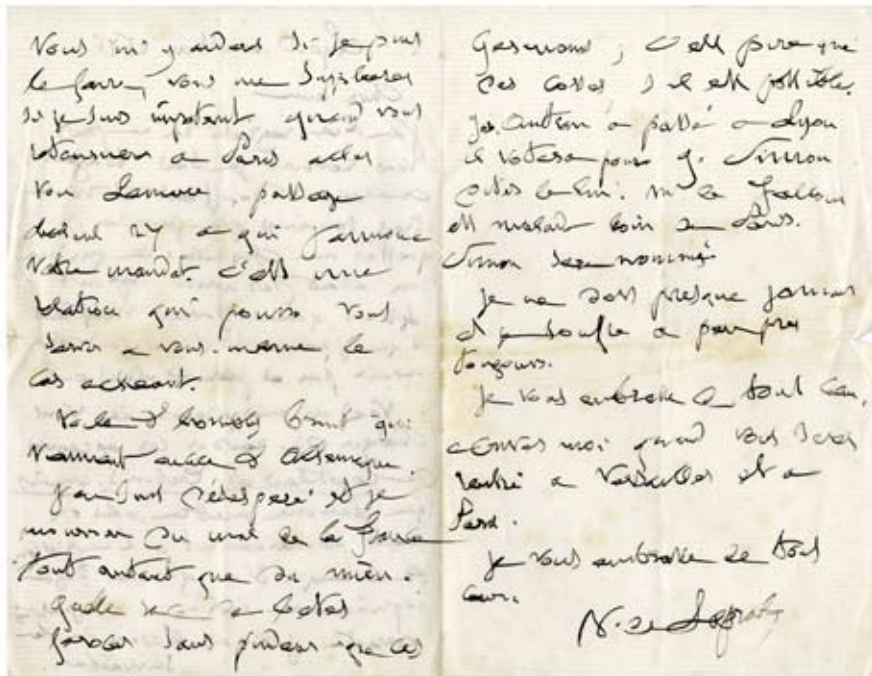 Vous m'y aiderez si je puis
le faire, vous me suppléerez
si je suis impotent. quand vous
retournerez à Paris allez
voir Lemerre, passage
Choiseul 27 à qui j'envoie
Votre mandat. c'est une
relation qui pourra vous
servir à vous-même, le
cas échéant.
Voilà d'horribles bruits qui
viennent encore d'Allemagne.
J'en suis désespéré et je
mourrai du mal de la France
tout autant que du mien.
Quelle de bêtes
féroces sans pudeur que ces
Gascons ; c'est pire que
des s'il est possible.
Jos. Autran a passé à Lyon
il votera pour J. Simon
M. de Falloux
est malade loin de Paris.
Simon sera nommé.
Je ne dors presque jamais
et je souffre à peu près
toujours.
Je vous embrasse de tout cœur,
écrivez moi quand vous serez
rentré à Versailles et à
Paris.
Je vous embrasse de tout
cœur.
V. de Laprade